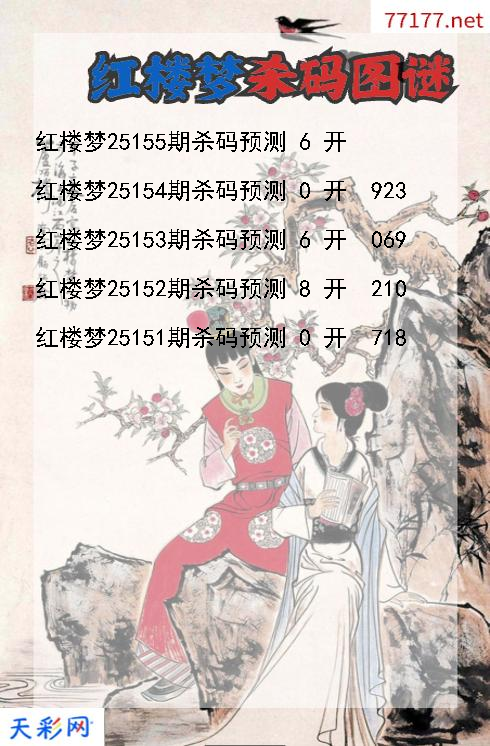 77177.net
红楼梦杀码图谜
红楼梦25155期杀码预测 6 开
红楼梦25154期杀码预测 0 开 923
红楼梦25153期杀码预测 6 开 069
红楼梦25152期杀码预测 8 开 210
红楼梦25151期杀码预测 0 开 718
天彩网